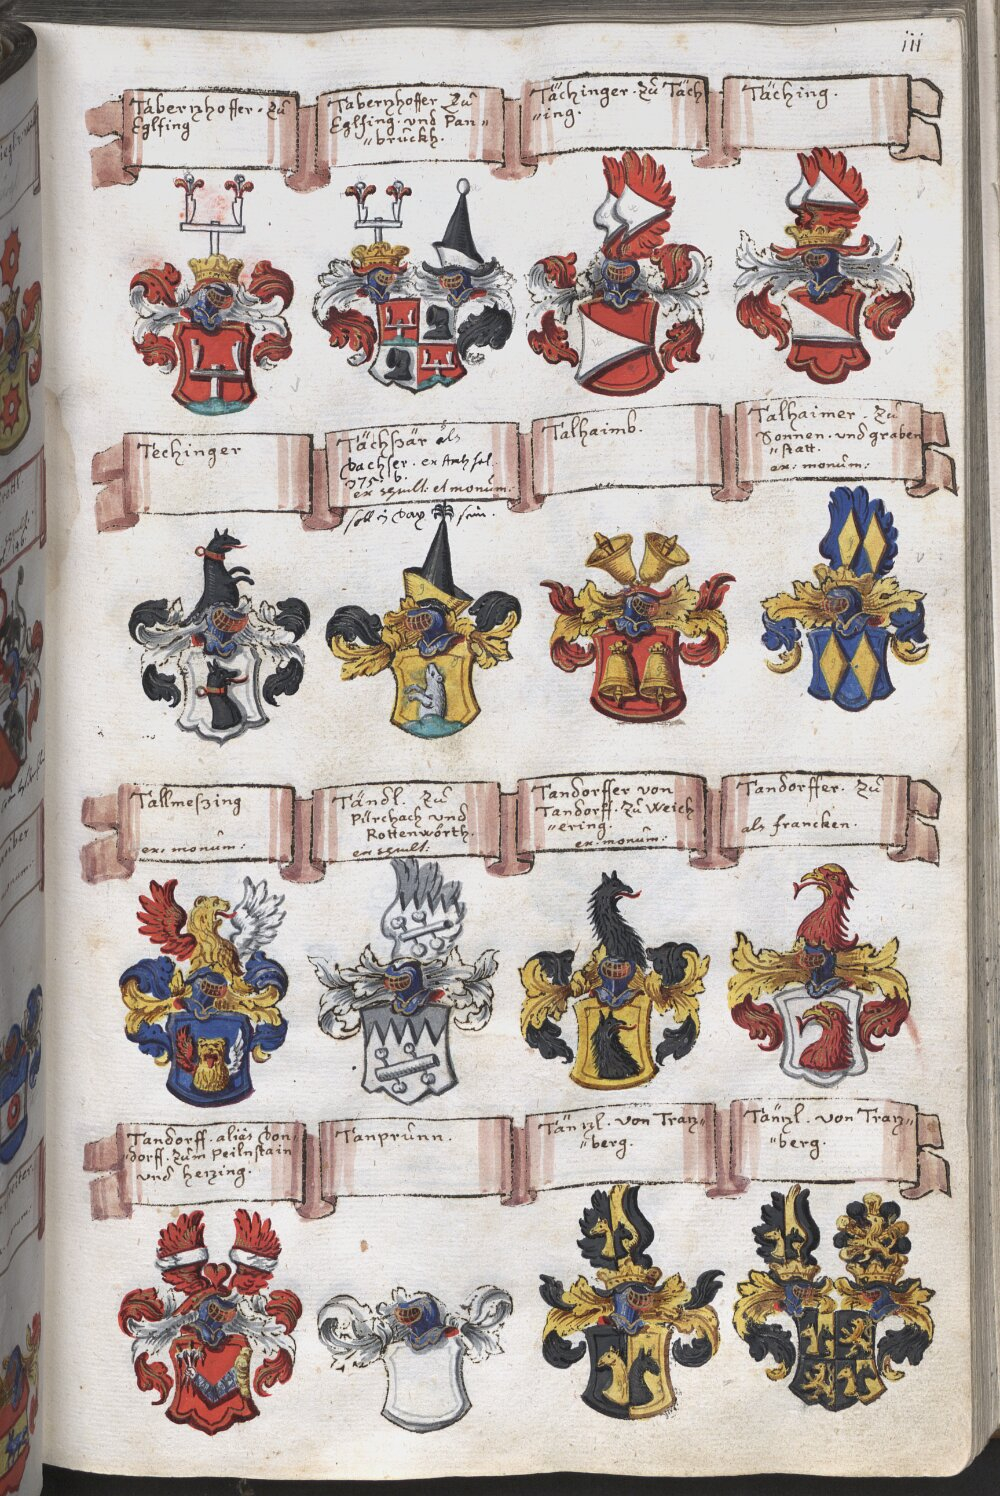 iii
Tabernhoffer. Zů
Eglfing
Tabernhoffer Zů
Eglfing. und Pan„
„brückh.
Tächinger. Zů Täch
„ing.
Täching.
Techinger
Tächßär als
Dachser.
ex monům:
soll ein Dax sein.
Talhaimb.
Talhaimer. Zů
Sonnen. und graben
„statt.
ex: monům:
Tallmeßing
ex. monům:
Tändl. Zů
Pürchach und
Rottenwörth.
ex scult.
Tandorffer von
Tandorff. Zů Weich
„ering.
ex: monům:
Tandorffer. Zů
als francken.
Tandorff. alias Don„
„dorff. Zům Peilnstain
und herzing.
Tanprůnn.
Tänzl. von Traz„
„berg.
Tänzl. von Traz„
„berg.